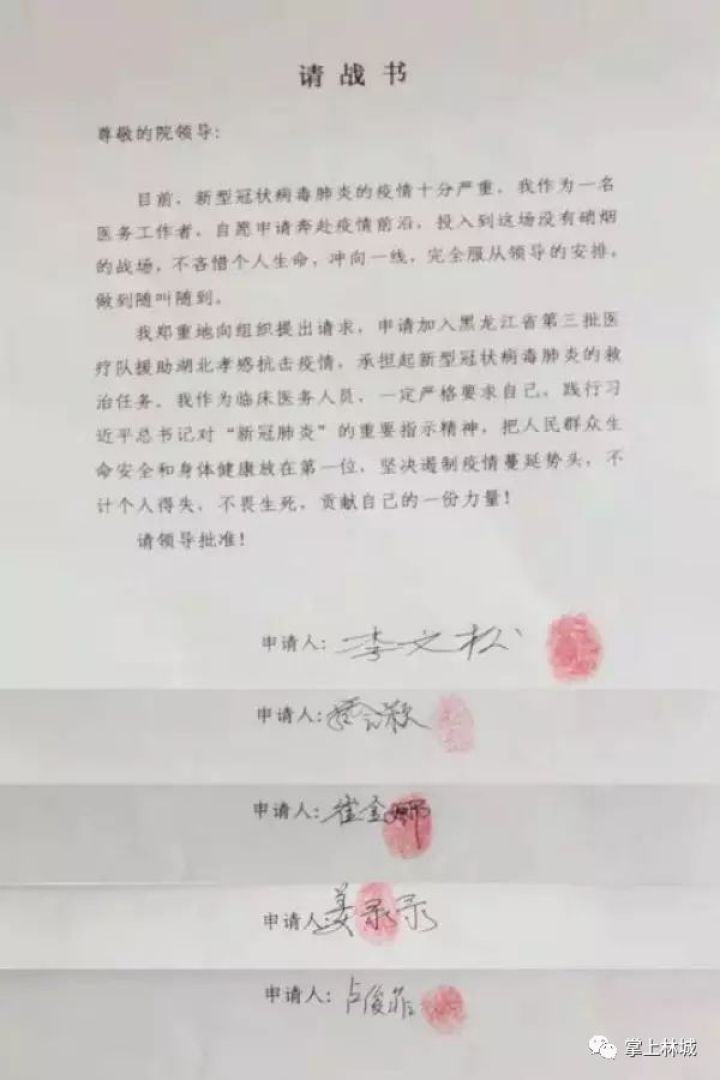 请战书
尊敬的院领导：
目前，新型冠状病毒肺炎的疫情十分严重，我作为一名
医务工作者，自愿申请奔赴疫情前沿，投入到这场没有硝烟
的战场，不吝惜个人生命，冲向一线，完全服从领导的安排，
做到随叫随到。
我郑重地向组织提出请求，申请加入黑龙江省第三批医
疗队援助湖北孝感抗击疫情，承担起新型冠状病毒肺炎的救
治任务。我作为临床医务人员，一定严格要求自己，践行习
近平总书记对“新冠肺炎”的重要指示精神，把人民群众生
命安全和身体健康放在第一位，坚决遏制疫情蔓延势头，不
计个人得失，不畏生死，贡献自己的一份力量！
请领导批准！
申请人：李文松
申请人：
申请人：崔金娜
申请人：姜录录
申请人：卢俊菲
掌上林城